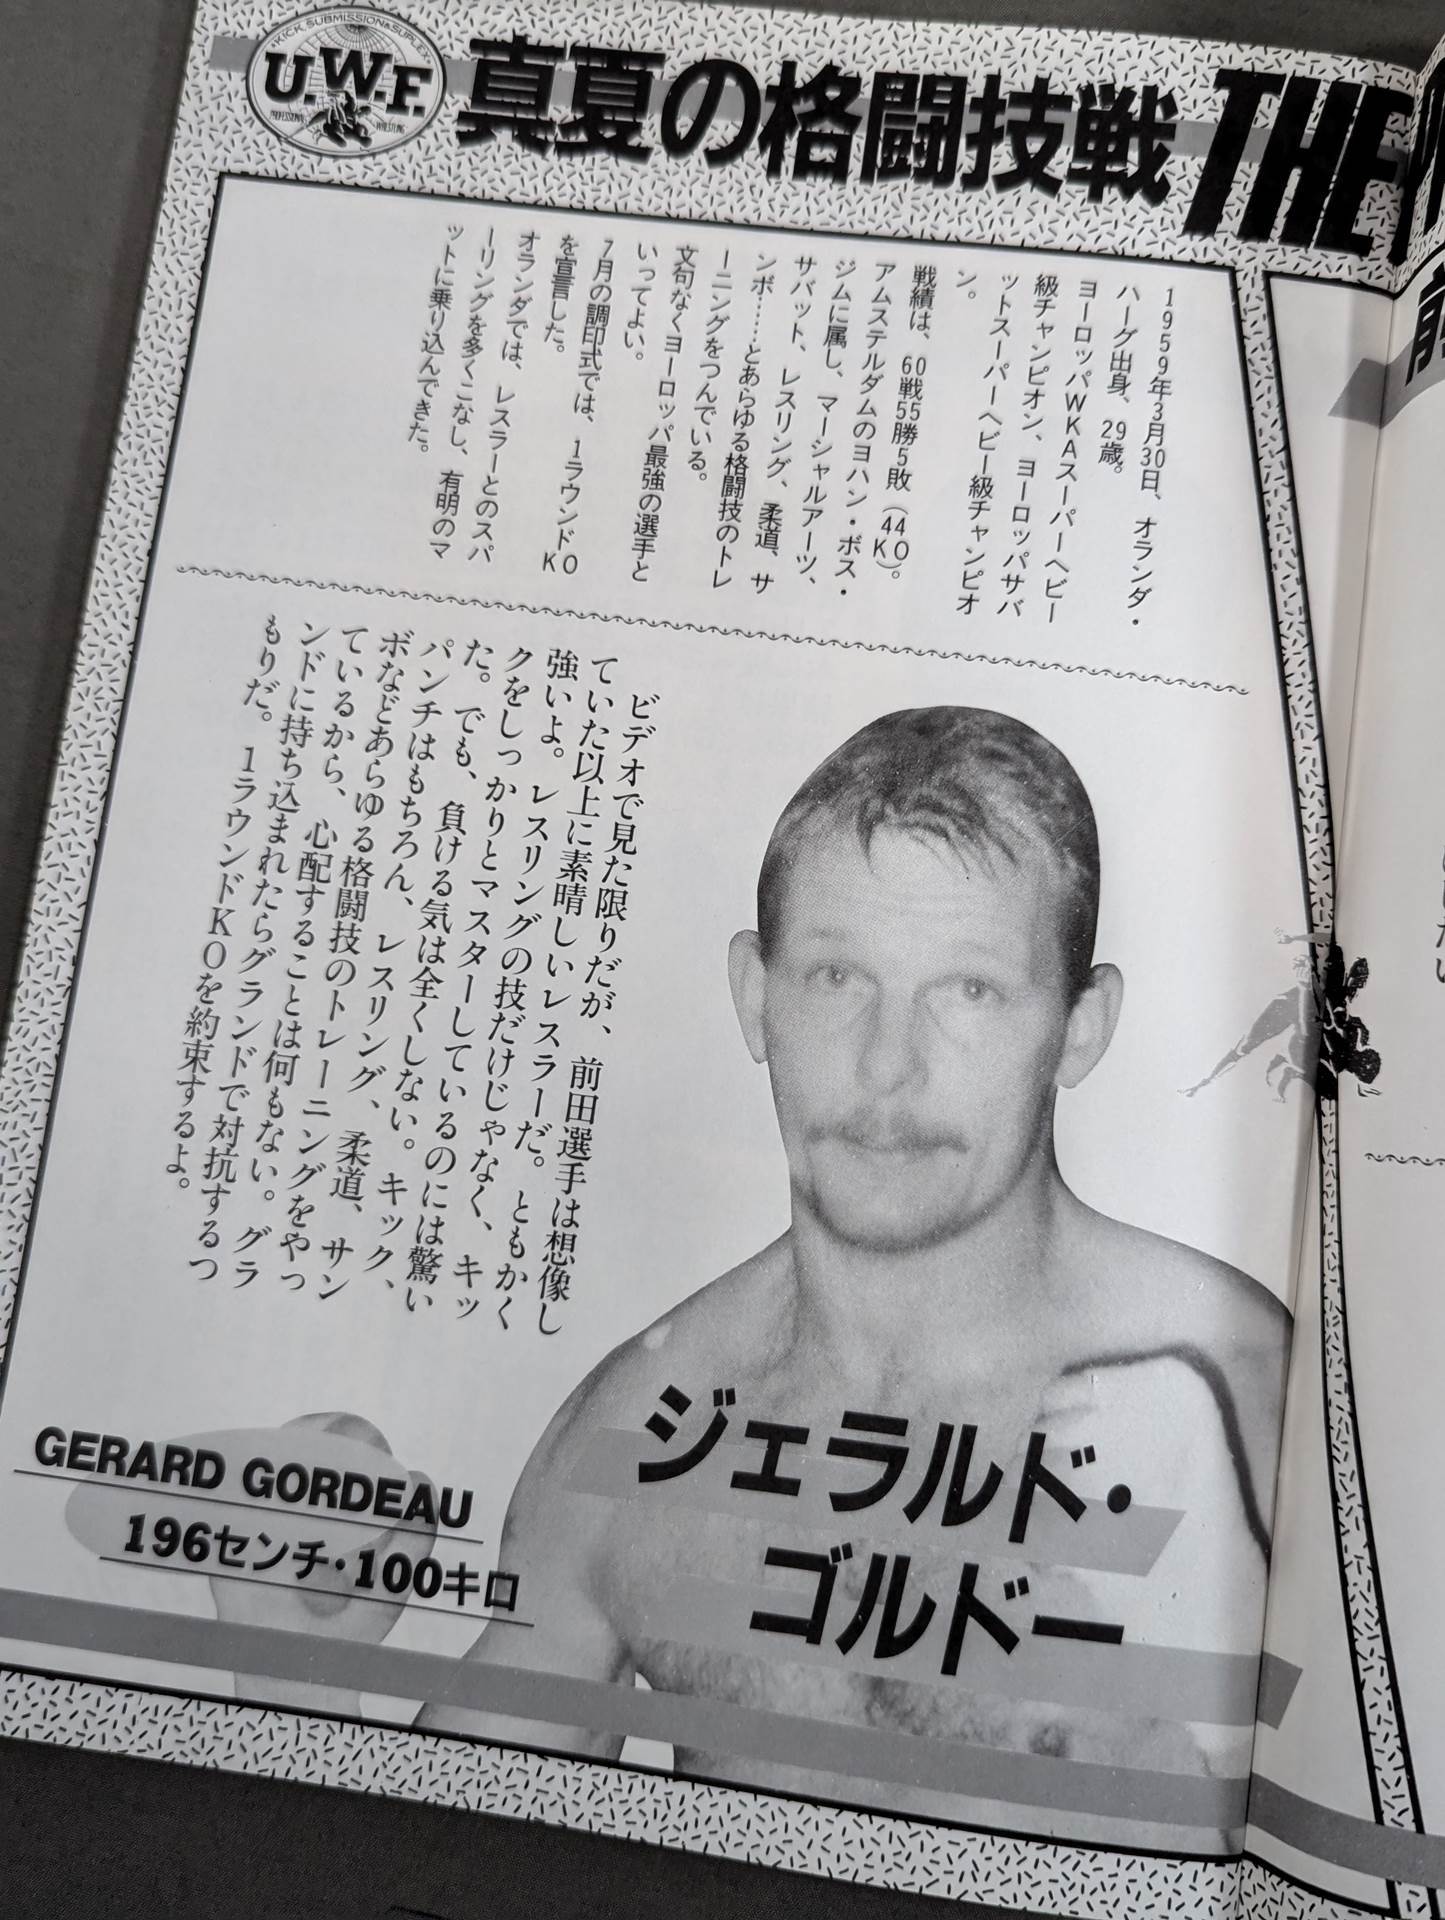 KICK, SUBMISSION & SUPLEX
U.W.F.
PROFESSIONAL WRESTLING
真夏の格闘技戦
THE
1959年3月30日、オランダ・
ハーグ出身、29歳。
ヨーロッパWKAスーパーヘビー
級チャンピオン、ヨーロッパサバ
ットスーパーヘビー級チャンピオ
ン。
戦績は、60戦55勝5敗（44KO）。
アムステルダムのヨハン・ボス・
ジムに属し、マーシャルアーツ、
サバット、レスリング、柔道、サ
ンボ……とあらゆる格闘技のトレ
ーニングをつんでいる。
文句なくヨーロッパ最強の選手と
いってよい。
7月の調印式では、1ラウンドKO
を宣言した。
オランダでは、レスラーとのスパ
ーリングを多くこなし、有明のマ
ットに乗り込んできた。
ビデオで見た限りだが、前田選手は想像し
ていた以上に素晴しいレスラーだ。ともかく
強いよ。レスリングの技だけじゃなく、キッ
クをしっかりとマスターしているのには驚い
た。でも、負ける気は全くしない。キック、
パンチはもちろん、レスリング、柔道、サン
ボなどあらゆる格闘技のトレーニングをやっ
ているから、心配することは何もない。グラ
ンドに持ち込まれたらグランドで対抗するつ
もりだ。1ラウンドKOを約束するよ。
ジェラルド・
ゴルドー
GERARD GORDEAU
196センチ・100キロ
前